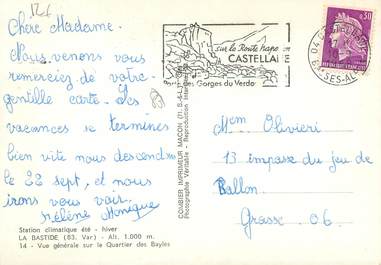 Chère Madame.
Nous venons vous
remerciez de votre
gentille carte. Les
vacances se termines
bien vite nous descend
le 22 sept, et nous
irons vous voir.
Hélène Monique
Station climatique été - hiver
LA BASTIDE (83. Var) - Alt. 1.000 m.
14 - Vue générale sur le Quartier des Bayles
COMBIER IMPRIMEUR MACON (71. S.-&-L.)
Photographie Véritable - Reproduction Interdite
sur la Route Napo
CASTELLANE
Les Gorges du Verdon
0,30
Mem Olivieri
13 impasse du jeu de
Ballon
Grasse 06.